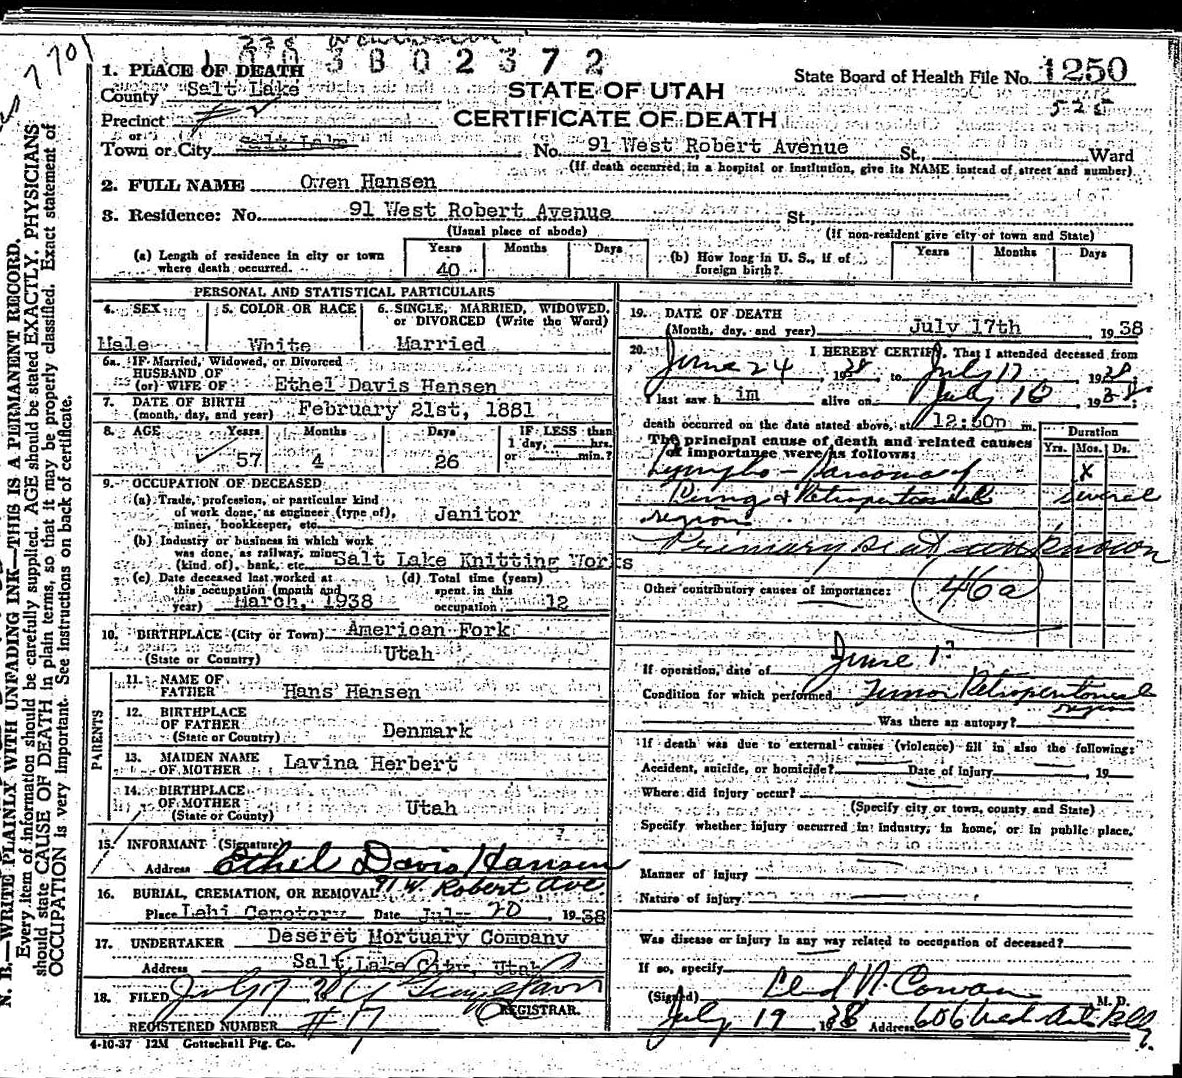 3802372
1. PLACE OF DEATH
State Board of Health File No. 1250
County Salt Lake
STATE OF UTAH
525
Precinct #2
CERTIFICATE OF DEATH
or
Town or City Salt Lake No. 91 West Robert Avenue St., Ward
(If death occurred in a hospital or institution, give its NAME instead of street and number)
2. FULL NAME Owen Hansen
3. Residence: No. 91 West Robert Avenue St.,
(Usual place of abode) (If non-resident give city or town and State)
(a) Length of residence in city or town where death occurred. Years 40 Months Days
(b) How long in U. S., if of foreign birth? Years Months Days
PERSONAL AND STATISTICAL PARTICULARS
4. SEX Male
5. COLOR OR RACE White
6. SINGLE, MARRIED, WIDOWED, or DIVORCED (Write the Word) Married
6a. IF Married, Widowed, or Divorced
HUSBAND OF
(or) WIFE OF Ethel Davis Hansen
7. DATE OF BIRTH
(month, day, and year) February 21st, 1881
8. AGE Years 57 Months 4 Days 26 IF LESS than 1 day, hrs. or min.?
9. OCCUPATION OF DECEASED
(a) Trade, profession, or particular kind
of work done, as engineer (type of),
miner, bookkeeper, etc. Janitor
(b) Industry or business in which work
was done, as railway, mine
(kind of), bank, etc. Salt Lake Knitting Works
(c) Date deceased last worked at
this occupation (month and
year) March, 1938
(d) Total time (years)
spent in this
occupation 12
10. BIRTHPLACE (City or Town) American Fork
(State or Country) Utah
PARENTS
11. NAME OF
FATHER Hans Hansen
12. BIRTHPLACE
OF FATHER
(State or Country) Denmark
13. MAIDEN NAME
OF MOTHER Lavina Herbert
14. BIRTHPLACE
OF MOTHER
(State or Country) Utah
15. INFORMANT (Signature) Ethel Davis Hansen
Address 91 W. Robert Ave
16. BURIAL, CREMATION, OR REMOVAL
Place Lehi Cemetery Date July 20, 1938
17. UNDERTAKER Deseret Mortuary Company
Address Salt Lake City, Utah
18. FILED July
REGISTRAR.
REGISTERED NUMBER #17
4-10-37 12M Gottschall Ptg. Co.
19. DATE OF DEATH
(Month, day, and year) July 17th 1938
20. I HEREBY CERTIFY, That I attended deceased from
June 24, 1938, to July 17, 1938
I last saw h im alive on July 16 1938;
death occurred on the date stated above, at 12:50p m.
The principal cause of death and related causes
of importance were as follows:
Duration
Yrs. Mos. Ds.
Lympho-Sarcoma of x
Lung & Retroperitoneal several
region
Primary seat unknown
Other contributory causes of importance: 46a
If operation, date of June 1?
Condition for which performed Tumor Retroperitoneal
region
Was there an autopsy?
If death was due to external causes (violence) fill in also the following:
Accident, suicide, or homicide? Date of Injury , 19
Where did injury occur?
(Specify city or town, county and State)
Specify whether injury occurred in industry, in home, or in public place.
Manner of Injury
Nature of Injury
Was disease or injury in any way related to occupation of deceased?
If so, specify
(Signed) N. Cowan M. D.
July 19 1938 Address 606 Med. Arts Bldg.
N. B.—WRITE PLAINLY WITH UNFADING INK—THIS IS A PERMANENT RECORD.
Every item of information should be carefully supplied. AGE should be stated EXACTLY. PHYSICIANS
should state CAUSE OF DEATH in plain terms, so that it may be properly classified. Exact statement of
OCCUPATION is very important. See instructions on back of certificate.